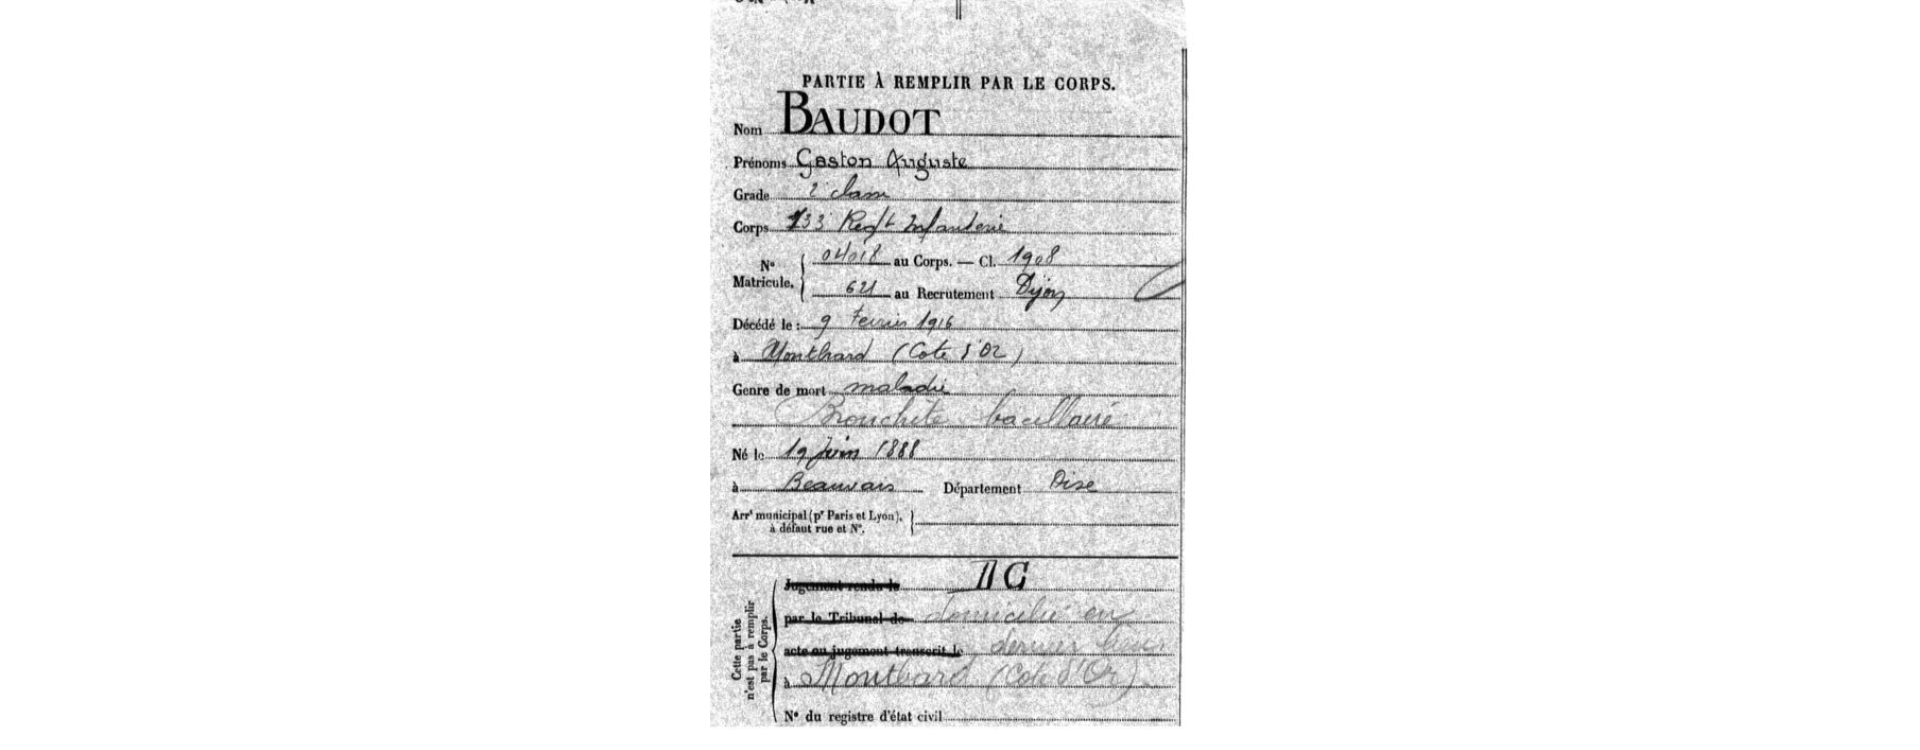 PARTIE À REMPLIR PAR LE CORPS.
Nom BAUDOT
Prénoms Gaston Auguste
Grade 2 classe
Corps 133 Regt Infanterie
N° Matricule. 04018 au Corps. — Cl. 1908
621 au Recrutement Dijon
Décédé le : 9 Fevrier 1916
à Montbard (Cote d'Or)
Genre de mort maladie
Bronchite bacillaire
Né le 19 Juin 1888
à Beauvais Département Oise
Arrt municipal (pr Paris et Lyon), à défaut rue et N°.
Cette partie n'est pas à remplir par le Corps.
Jugement rendu le
par le Tribunal de domicilié en
acte ou jugement transcrit le dernier lieu
à Montbard (Cote d'Or)
N° du registre d'état civil